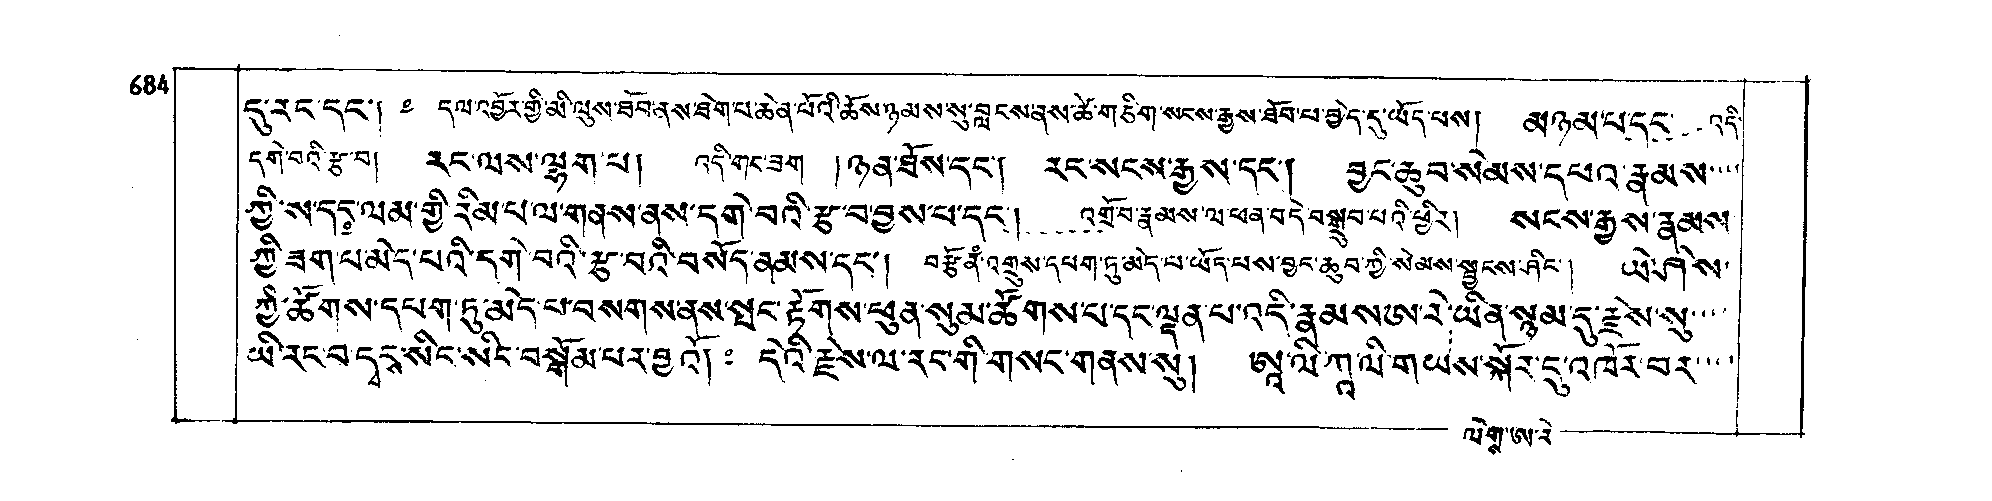 684
དུ་རང་དང་། ༔ དལ་འབྱོར་གྱི་མི་ལུས་ཐོབ་ནས་ཐེག་པ་ཆེན་པོའི་ཆོས་ཉམས་སུ་བླངས་ནས་ཚེ་གཅིག་སངས་རྒྱས་ཐོབ་པ་བྱེད་དུ་ཡོད་པས། མ་ཉམ་པ་དང་ འདི་
དགེ་བའི་རྩ་བ། རང་ལས་ལྷག་པ། འདི་གང་ཟག །ཉན་ཐོས་དང་། རང་སངས་རྒྱས་དང་། བྱང་ཆུབ་སེམས་དཔའ་རྣམས་
ཀྱི་ས་དང་ལམ་གྱི་རིམ་པ་ལ་གནས་ནས་དགེ་བའི་རྩ་བ་བྱས་པ་དང་། འགྲོ་བ་རྣམས་ལ་ཕན་བདེ་བསྒྲུབ་པའི་ཕྱིར། སངས་རྒྱས་རྣམས་
ཀྱི་ཟག་པ་མེད་པའི་དགེ་བའི་རྩ་བའི་བསོད་ནམས་དང་། བརྩོན་འགྲུས་དཔག་ཏུ་མེད་པ་ཡོད་པས་བྱང་ཆུབ་ཀྱི་སེམས་སྦྱངས་ཤིང་། ཡེ་ཤེས་
ཀྱི་ཚོགས་དཔག་ཏུ་མེད་པ་བསགས་ནས་སྤང་རྟོགས་ཕུན་སུམ་ཚོགས་པ་དང་ལྡན་པ་འདི་རྣམས་ཨ་རེ་ཡིན་སྙམ་དུ་རྗེས་སུ་
ཡི་རང་བ་དྭངས་སིང་སིང་བསྒོམ་པར་བྱའོ༔ དེའི་རྗེས་ལ་རང་གི་གསང་གནས་སུ། ཨཱ་ལི་ཀཱ་ལི་གཡས་སྐོར་དུ་འཁོར་བར་
ལེགྷ་ཨ་རེ